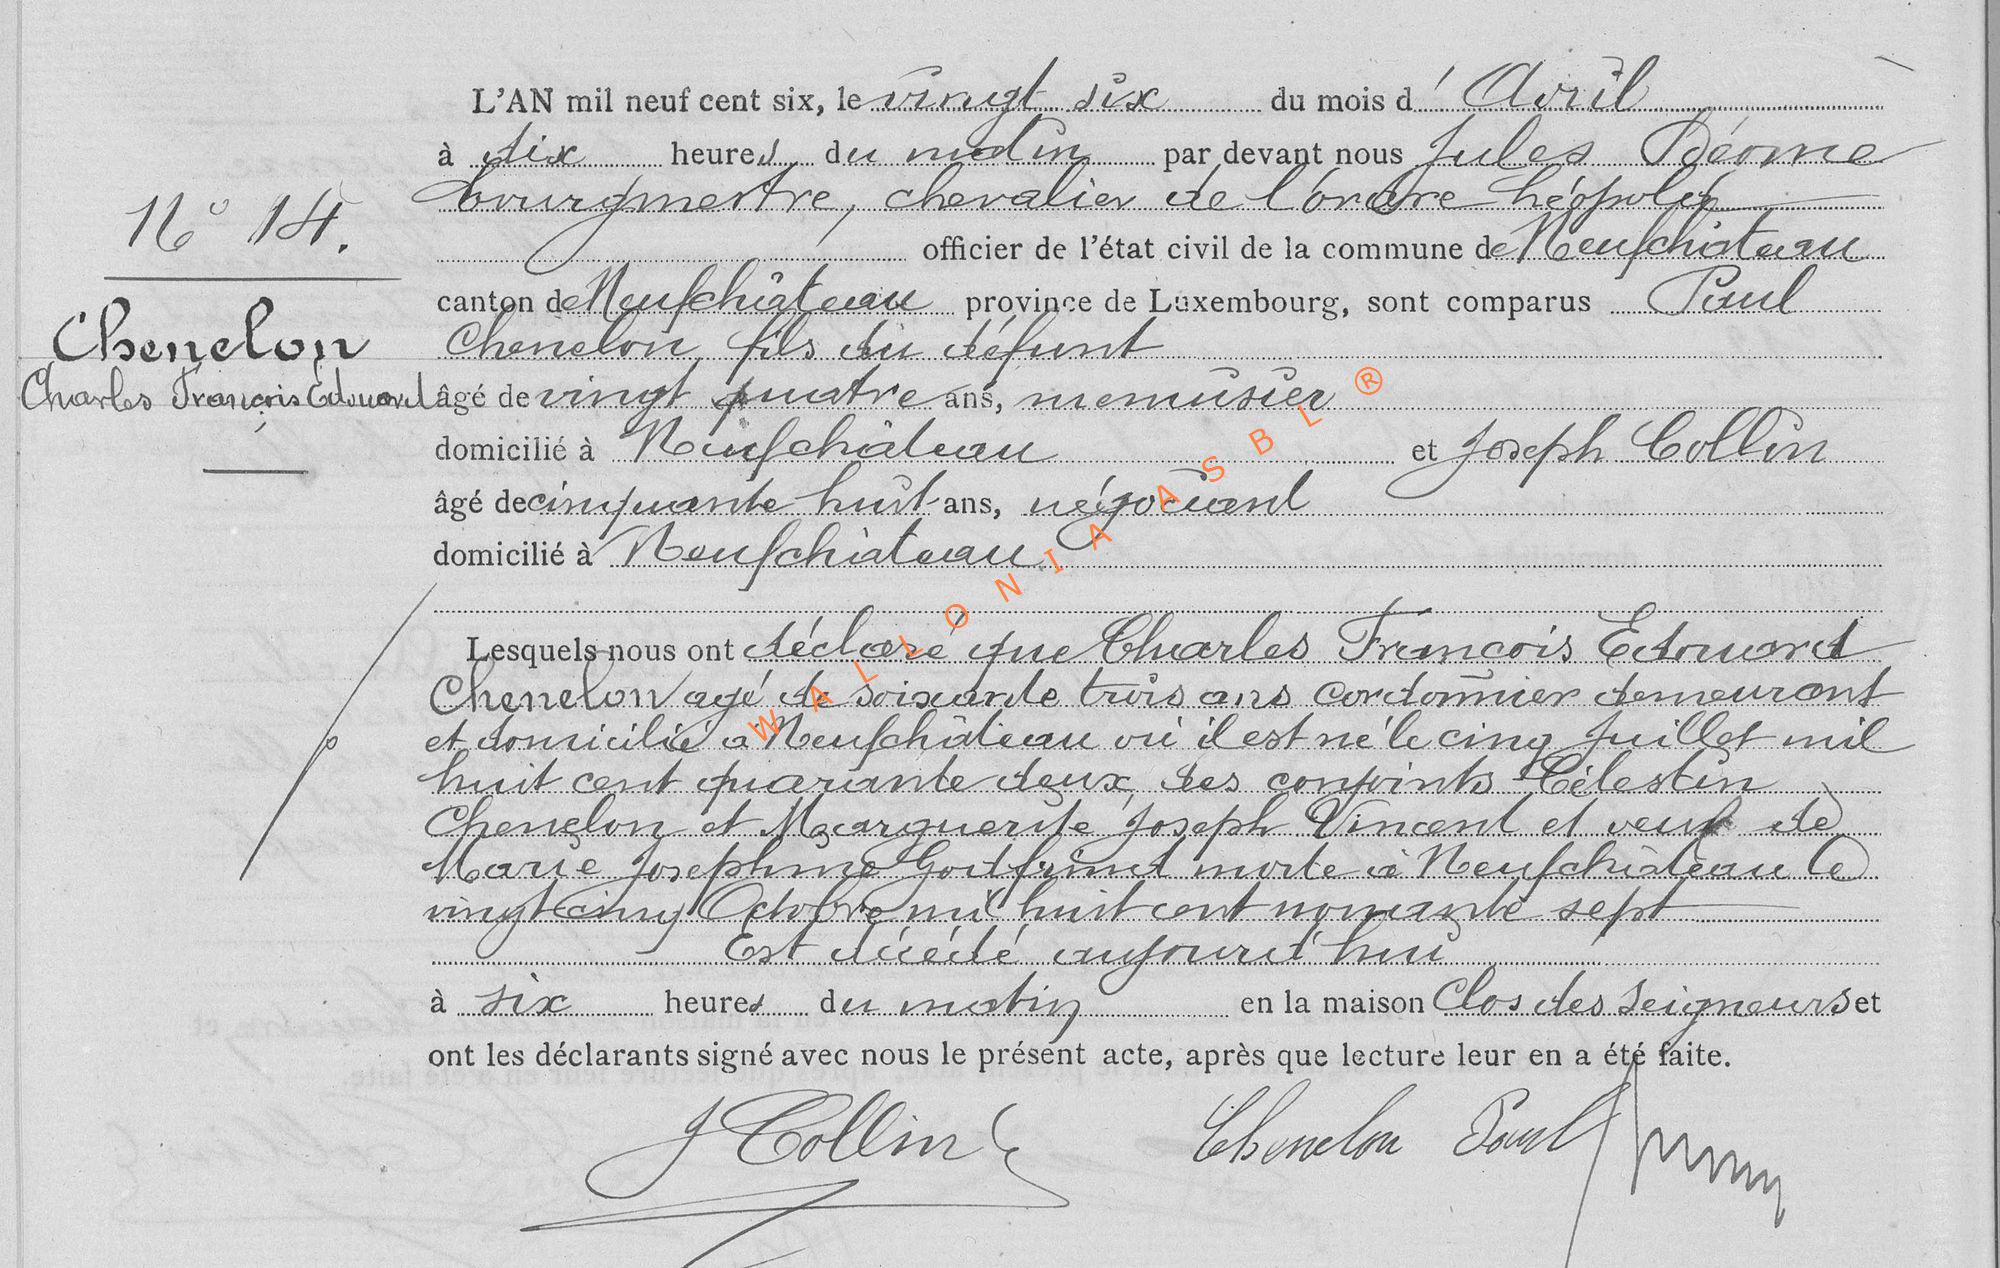 L'AN mil neuf cent six, le vingt six du mois d' Avril
à dix heures du matin par devant nous Jules
bourgmestre, chevalier de l'ordre Léopold
officier de l'état civil de la commune de Neufchâteau
canton de Neufchâteau province de Luxembourg, sont comparus Paul
Chenelon, fils du défunt
âgé de vingt quatre ans, menusier
domicilié à Neufchâteau et Joseph Collin
âgé de cinquante huit ans, négociant
domicilié à Neufchâteau
N° 14.
Chenelon
Charles François Edouard
Lesquels nous ont déclaré que Charles François Edouard
Chenelon agé de soixante trois ans cordonnier demeurant
et domicilié à Neufchâteau où il est né le cinq Juillet mil
huit cent quarante deux, des conjoints Célestin
Chenelon et Marguerite Joseph Vincent et veuf de
Marie Josephine morte à Neufchâteau le
vingt cinq Octobre mil huit cent nonante sept
Est décédé aujourd'hui
à six heures du matin en la maison Clos des Seigneurs et
ont les déclarants signé avec nous le présent acte, après que lecture leur en a été faite.
J Collin Chenelon Paul
WALLONIA ASBL ®